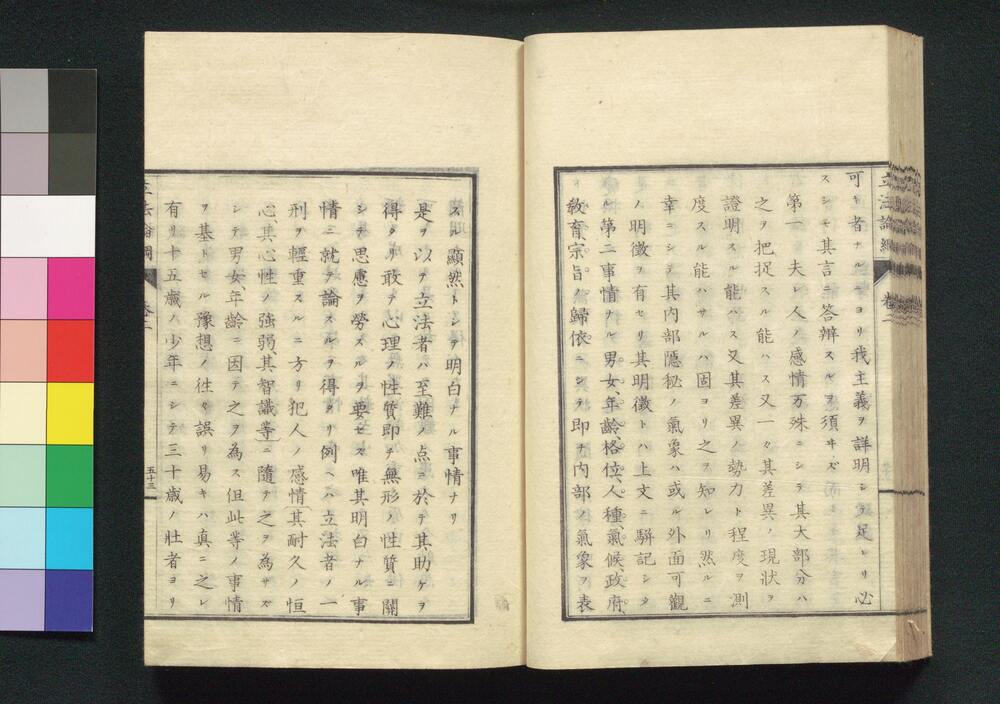 立法論綱 卷二
可キ者ナルヿヨリ我主義ヲ詳明シテ足レリ必
スシモ其言ニ答辨スルヲ須ヰズ
第一 夫レ人ノ感情万殊ニシテ其大部分ハ
之ヲ把捉スル能ハス又一々其差異ノ現状ヲ
證明スル能ハス又其差異ノ勢力ト程度ヲ測
度スル能ハサルハ固ヨリ之ヲ知レリ然ルニ
幸ニシテ其内部隠秘ノ氣象ハ或ル外面可觀
ノ明徴ヲ有セリ其明徴トハ上文ニ駢記シタ
ル第二事情ナル男女、年齡、格位、人種、氣候、政府、
教育、宗旨ノ歸依ニシテ即チ内部ノ氣象ヲ表
スル顯然トシテ明白ナル事情ナリ
是ヲ以テ立法者ハ至難ノ点ニ於テ其助ケヲ
得タリ敢テ心理ノ性質即チ無形ノ性質ニ關
シテ思慮ヲ勞スルヲ要セス唯其明白ナル事
情ニ就テ論スルヲ得タリ例ヘハ立法者ノ一
刑ヲ輕重スルニ方リ犯人ノ感情、其耐久ノ恒
心、其心性ノ強弱、其智識等ニ隨テ之ヲ為サズ
シテ男女、年齡ニ因テ之ヲ為ス但此等ノ事情
ヲ基トセル豫想ノ徃々誤リ易キハ真ニ之レ
有リ十五歳ノ少年ニシテ三十歳ノ壮者ヨリ
立法論綱 卷二 五十三